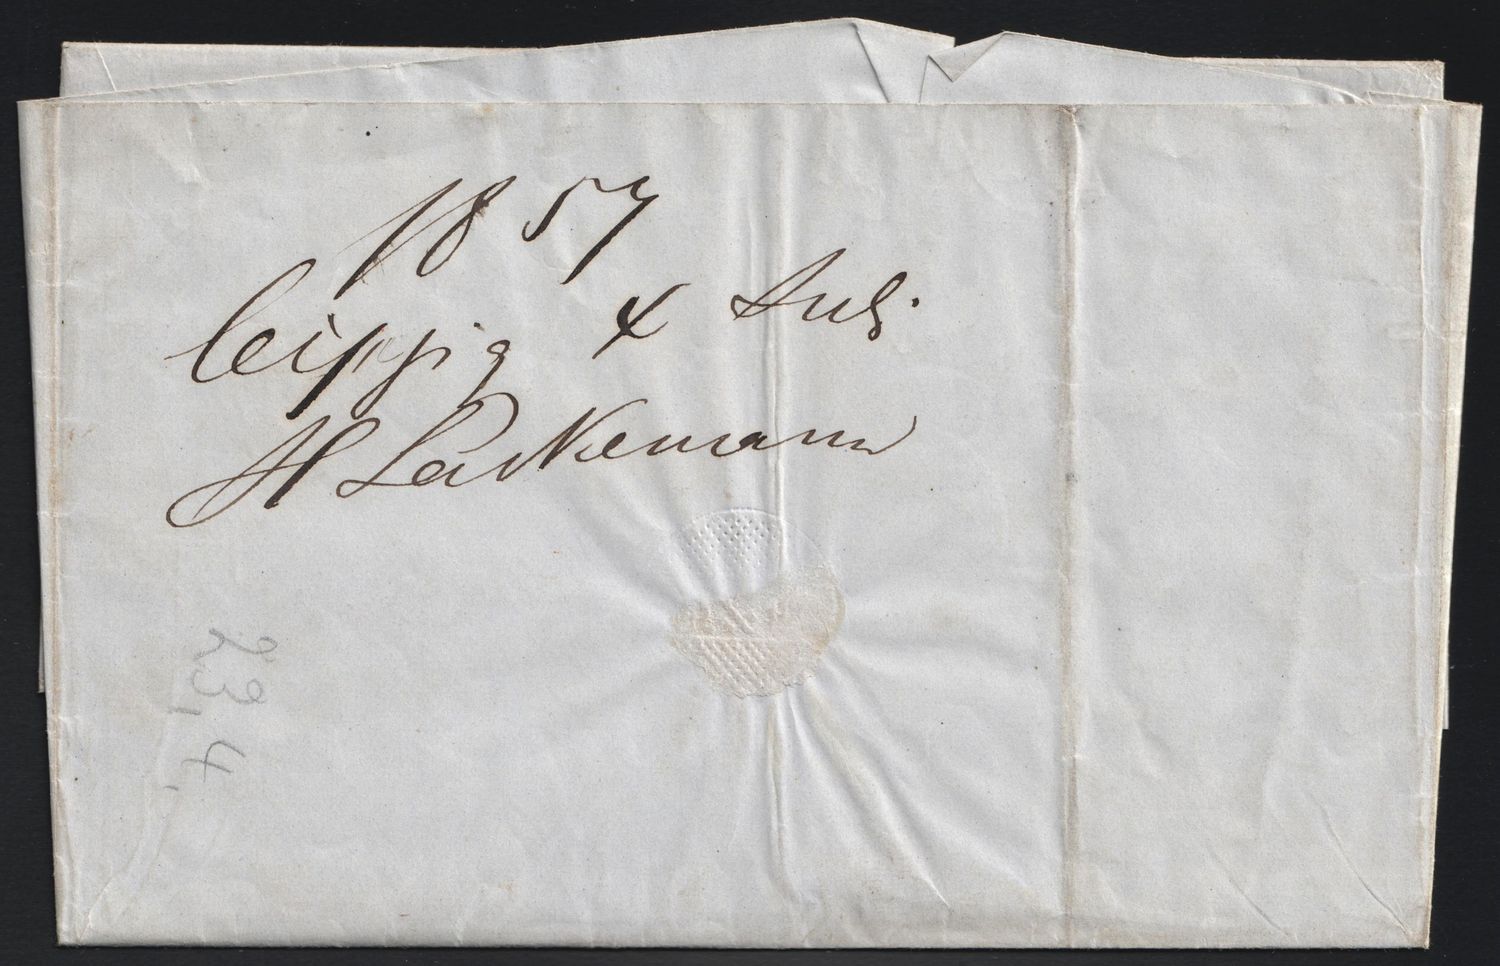 1857
Leipzig 4 Juli
H Lackemann
23,4